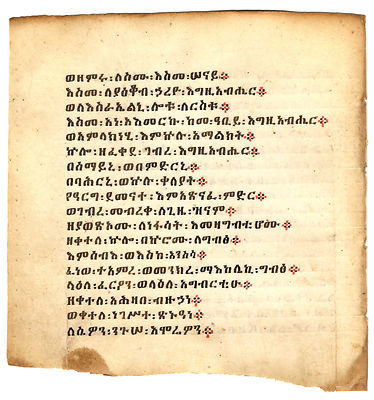 ወዘምሩ፡ለስሙ፡እስመ፡ሠናይ።
እስመ፡ለያዕቆብ፡ኃረዮ፡እግዚአብሔር።
ወለእስራኤልኒ፡ሎቱ፡ለርስቱ።
እስመ፡አነ፡አእመርኩ፡ከመ፡ዓቢይ፡እግዚአብሔር።
ወአምላክነሂ፡እምኵሉ፡አማልክት።
ኵሎ፡ዘፈቀደ፡ገብረ፡እግዚአብሔር።
በሰማይኒ፡ወበምድርኒ።
በባሕርኒ፡ወኵሉ፡ቀላያት።
የዓርግ፡ደመናተ፡እምአጽናፈ፡ምድር።
ወገብረ፡መብረቀ፡ለጊዜ፡ዝናም።
ዘያወጽኦሙ፡ለነፋሳት፡እመዛግብቲሆሙ።
ዘቀተለ፡ኵሎ፡በኵሮሙ፡ለግብፅ።
እምሰብእ፡ወእስከ፡እንስሳ።
ፈነወ፡ተአምረ፡ወመንክረ፡ማእከሌኪ፡ግብፅ።
ላዕለ፡ፈርዖን፡ወላዕለ፡አግብርቲሁ።
ዘቀተለ፡አሕዛበ፡ብዙኃነ።
ወቀተለ፡ነገሥተ፡ጽኑዓነ።
ለሴዎን፡ንጉሠ፡አሞሬዎን።